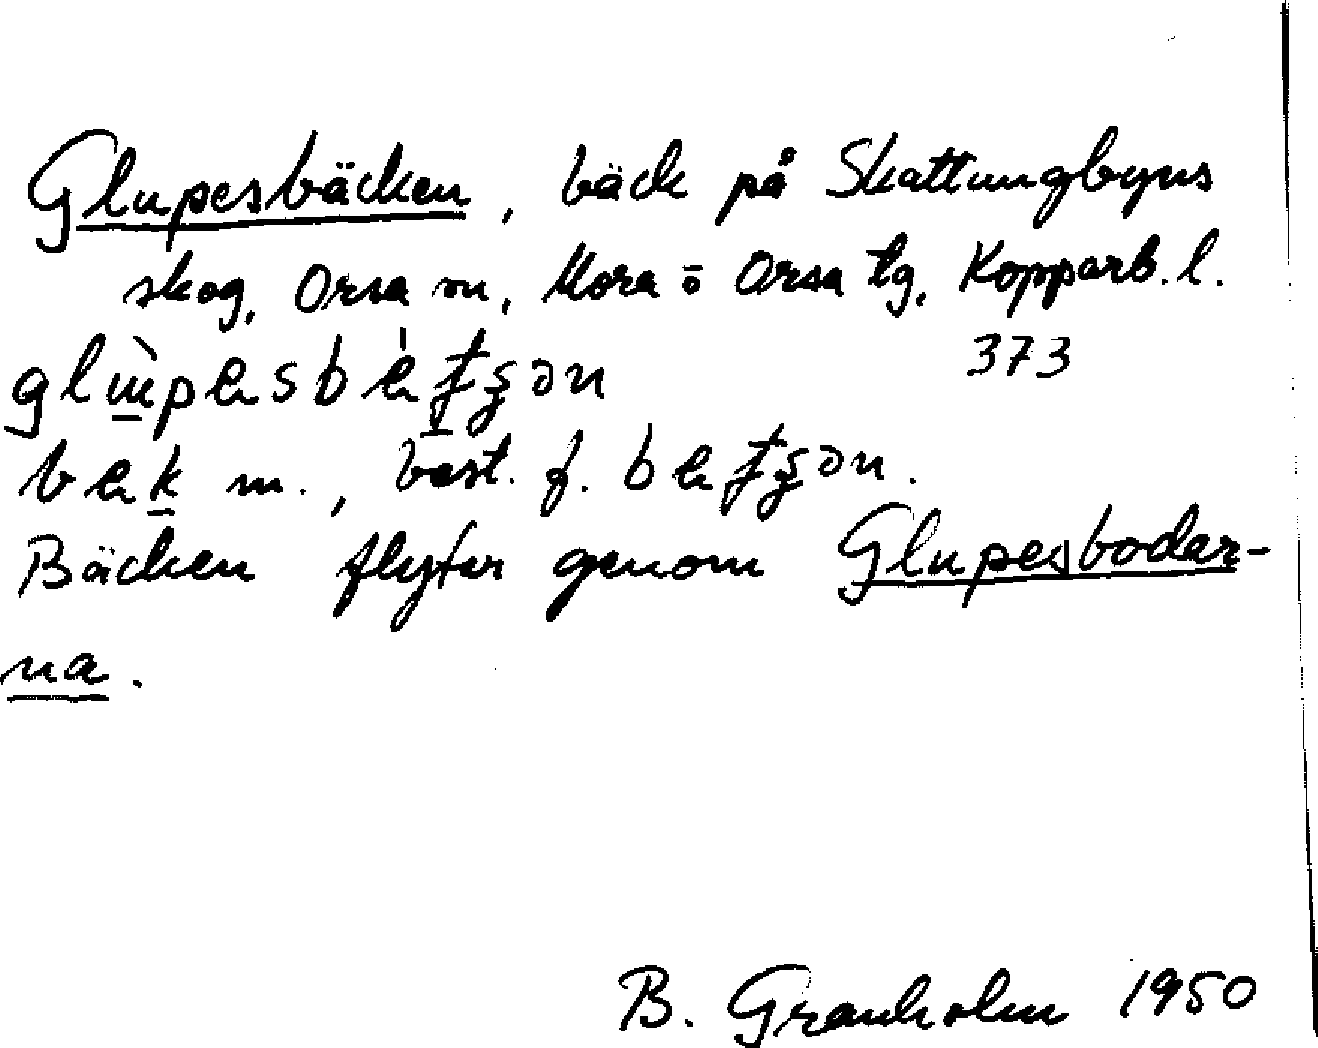 Glupesbäcken, bäck på Skattungbyns
skog, Orsa sn, Mora o Orsa tg, Kopparb. l.
373
m., best. f.
Bäcken flyter genom Glupesbodar-
na.
B. Granholm 1950